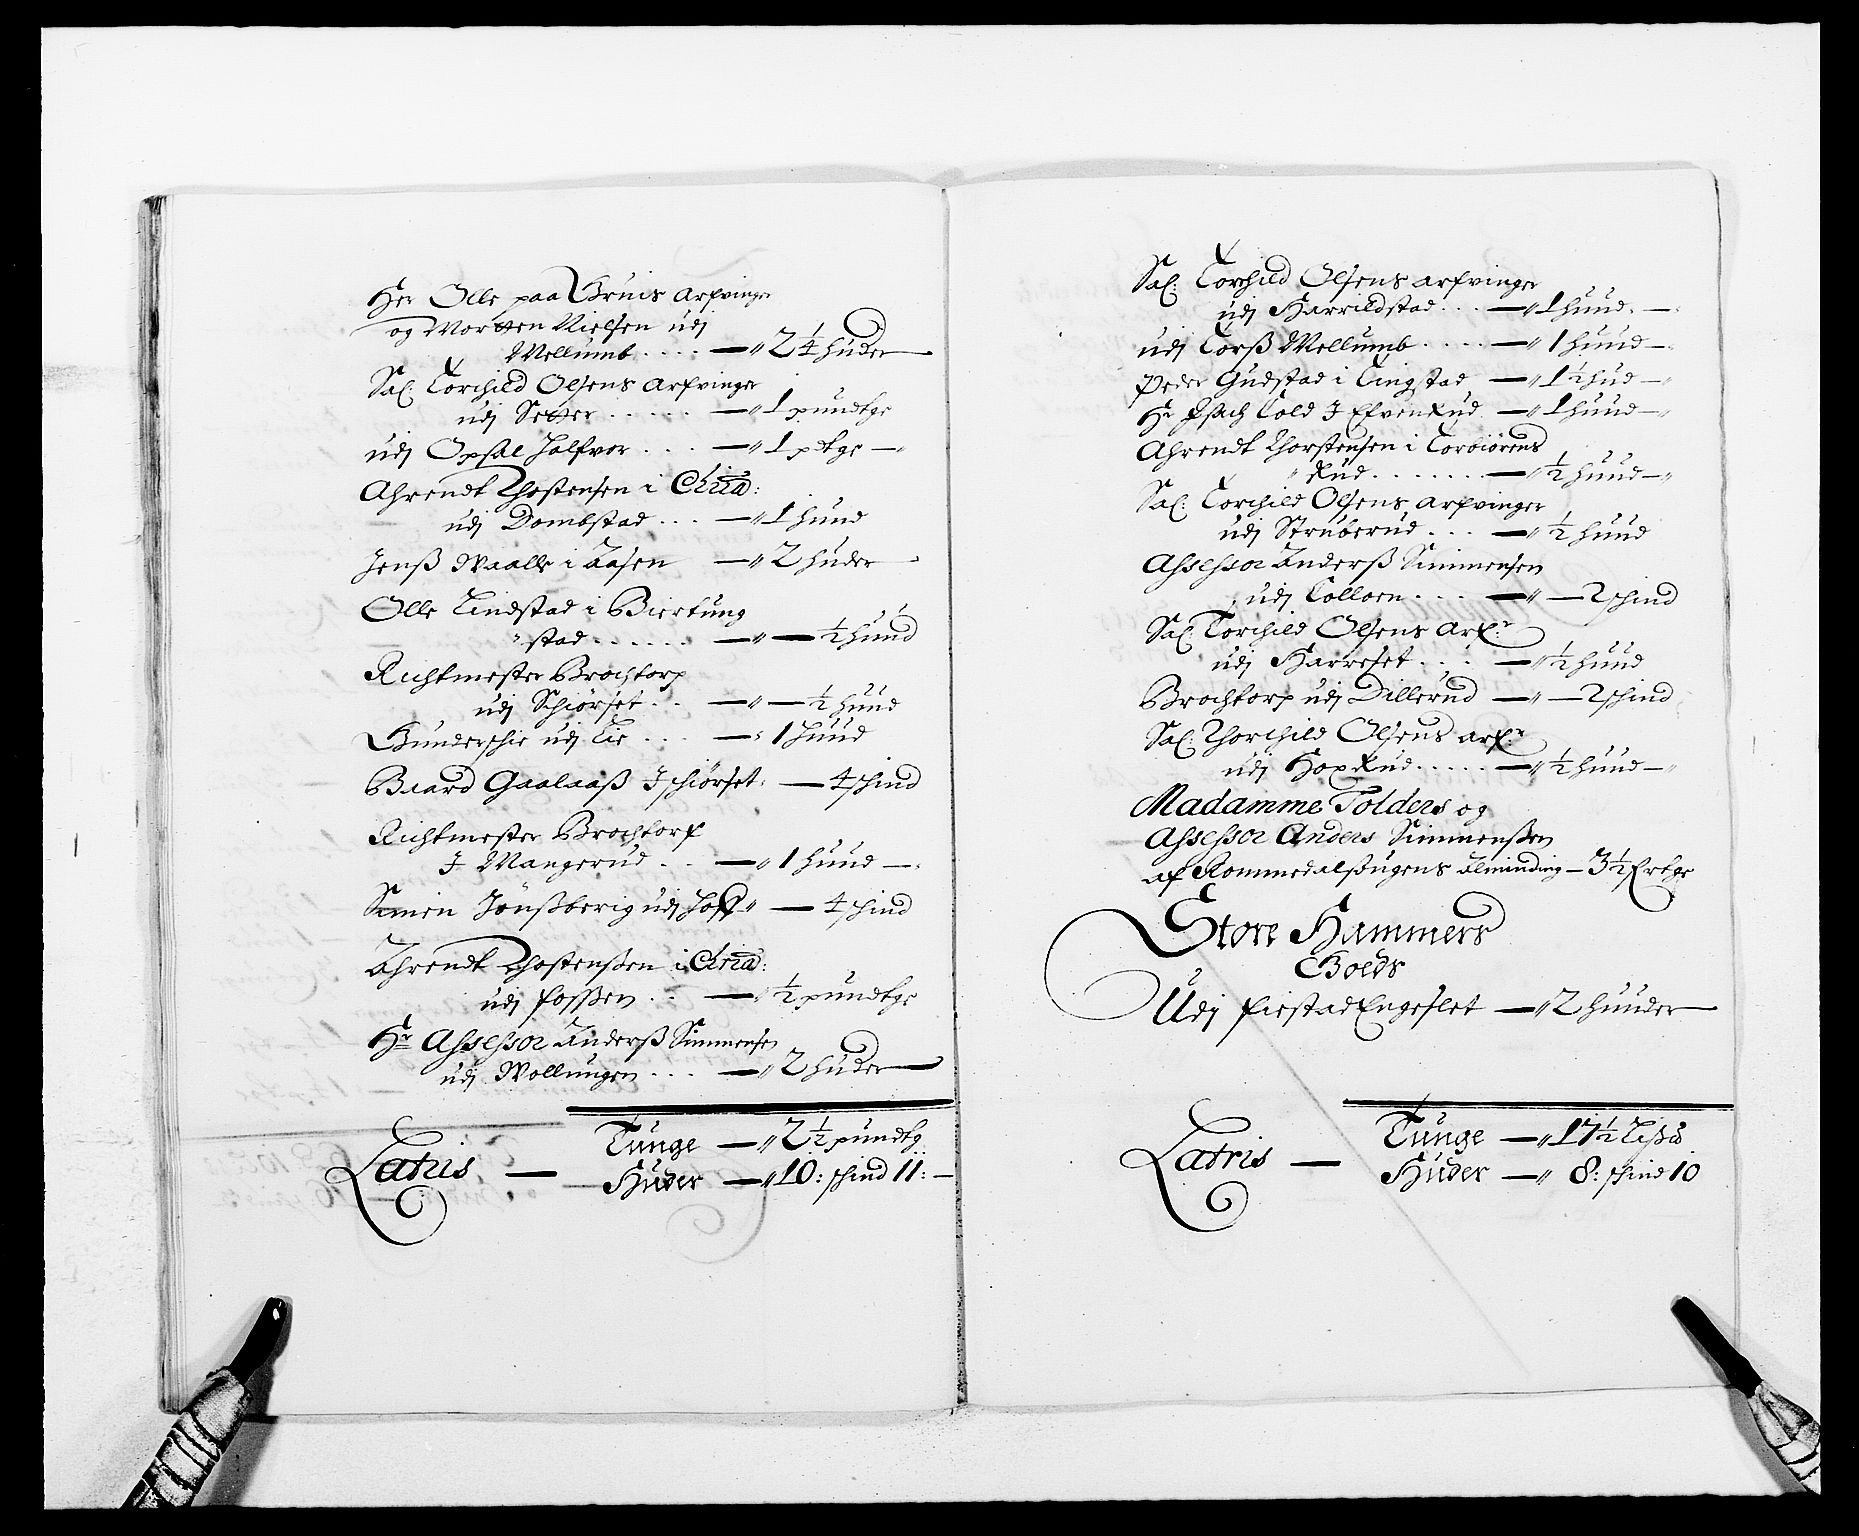 Her Olle paa Gruis Arfvinger
og Morten Nielsen udj
Mellumb . . . . — 2 1/4 huder —
Sal: Torchild Olsens Arfvinger
udj Setter . . . . . — 1 pundtge
udj Opsal Halfvor . . . — 1 pdtge —
Ahrendt Thostensen i Chria:
udj Dombstad . . . — 1 hund
Jenß Waalle i Aasen — 2 huder —
Olle Lindstad i Biertung
stad . . . . . . — — 1/2 hund
Richtmester Brochtorp
udj Schiørset . . — — 1/2 huud
Gunderschie udj Lie . . . — 1 huud
Baard Gaalaaß J schiørset: — 4 schind
Richtmester Brochtorp
J Mangerud . . — 1 huud —
Simen Jønßberig udj Hoff — 4 schind
Ahrendt Thostenßen i Chria:
udj Fosßen . . — 1/2 pundtge
Hr Assessor Anderß Simmensen
udj Wollungen . . . — 2 huder —
Latris — Tunge — 2 1/2 pundtg
Huder — 10: schind 11: —
Sal: Torchild Olsens arfvinger
udj Harrildstad . . . — 1 huud. —
udj Torß Mellumb . . . . — 1 huud —
Peder Gudstad i Tingstad — 1 1/2 hud —
Hr Isach Cold J Efvenrud — 1 huud —
Ahrendt Thorstensen i Torbiørens
Rud . . . . . . . — 1/2 huud —
Sal: Torchild Olsens, arfvinger
udj Struberud . . . — 1/2 huud
Assessor Anderß Simmensen
udj Colloen . . . . — — 2 schind
Sal: Torchild Olsens Arf:r
udj Harreset . . . . — 1/2 huud
Brochtorp udj Dillerud — — 2 schind
Sal: Thorchild Olsens arf:r
udj Hoxrud . . . . . — 1/2 huud —
Madamme Tolders og
Assessor Anders Simmenßen
af Rommedalsßugens alminding — 3 1/2 Ertge
Store Hammers
Goeds
Udj Fiestad Engeslet — 2 huuder —
Latris — Tunge — 17 1/2 Lißd
Huder — 8: schind 10